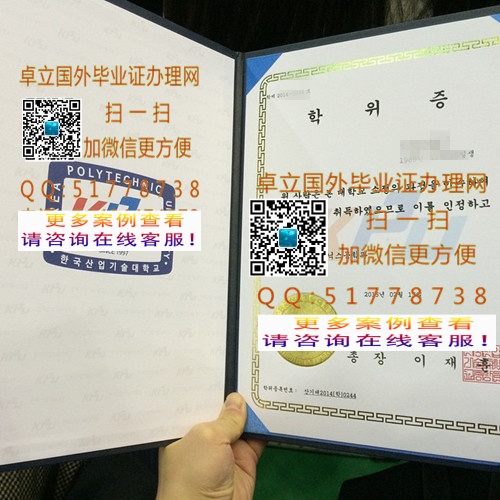 卓立国外毕业证办理网
扫一扫
加微信更方便
POLYTECHNIC
QQ:51778738
更多案例查看
请咨询在线客服!
한국산업기술대학교
학 위 증
卓立国外毕业证办理网
취득하였으므로 이를 인정하고
扫一扫
加微信更方便
QQ:51778738
更多案例查看
请咨询在线客服!
총 장 이 재 훈
학위등록번호: 산기대2014(학)0244